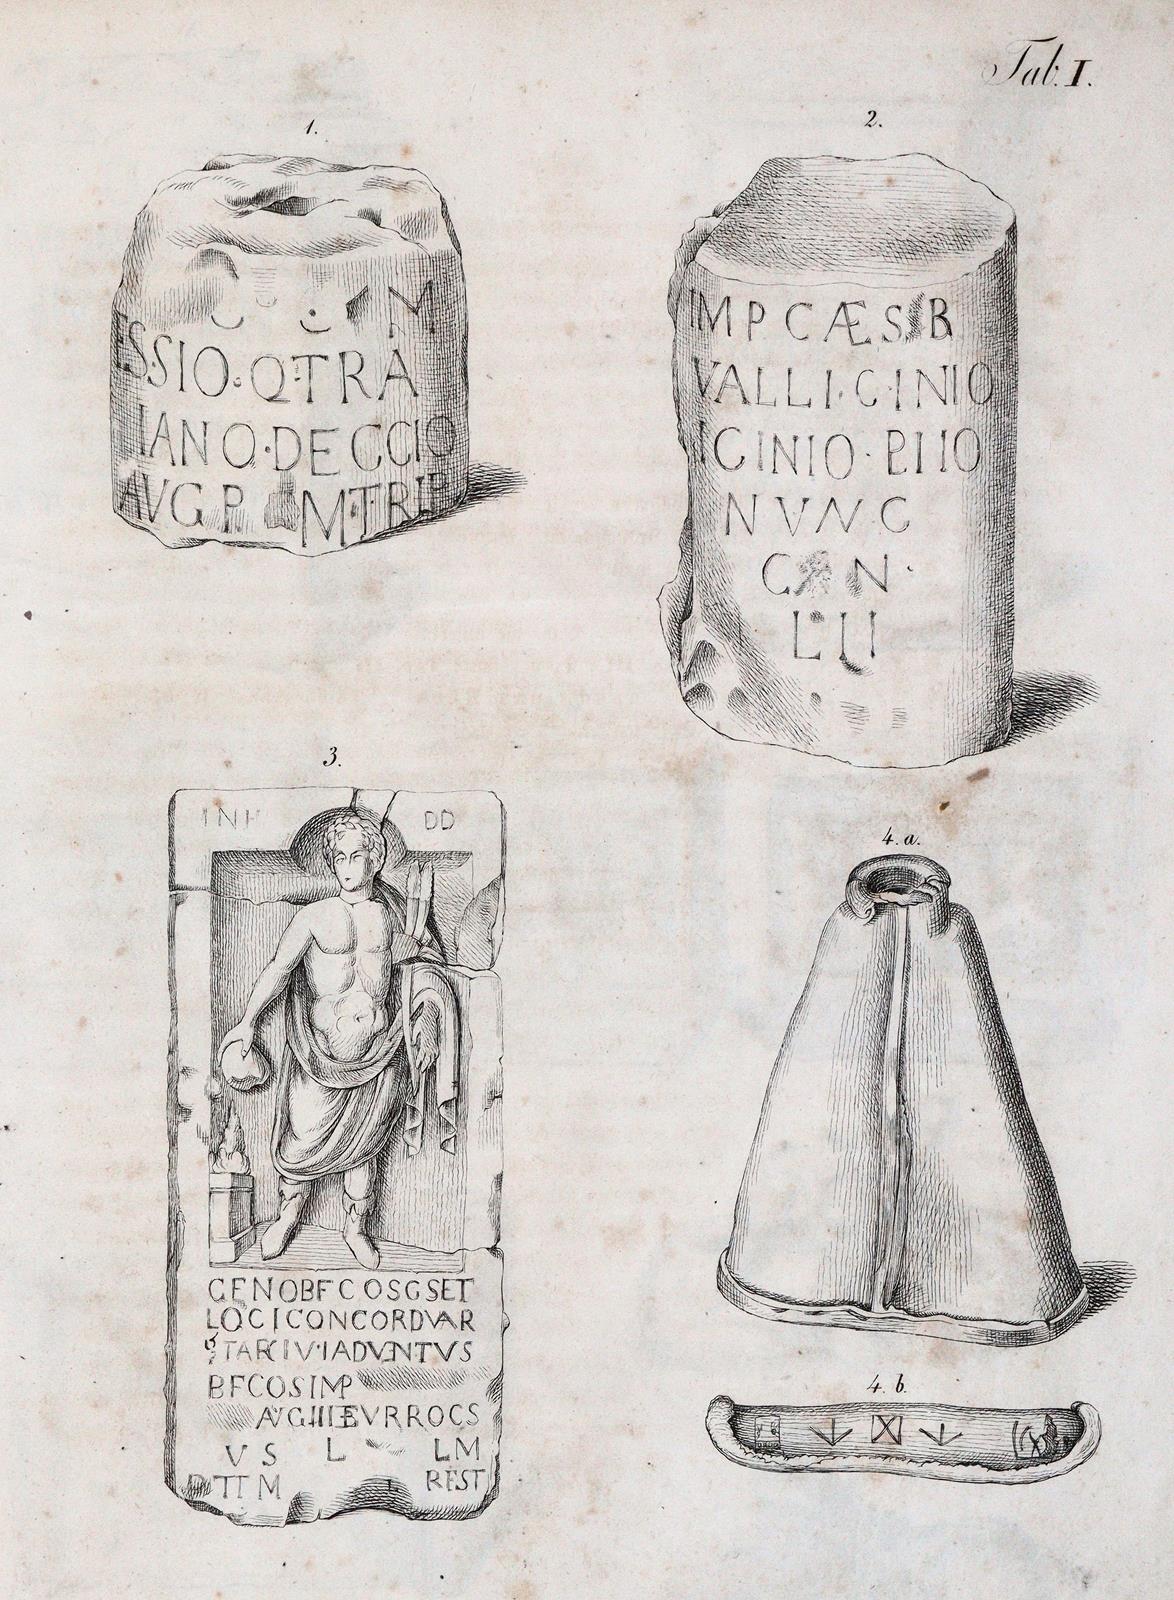 Tab. I.
1.
M
ESSIO·Q·TRA
IANO·DECCIO
AVG P M·TRIP
2.
IMP CÆS B
VALLI·C·INIO
ICINIO·PIIO
NVNC
C N
LII
3.
INH DD
GENOBFCOSGSET
LOCICONCORDVAR
STARCIV·IADVENTVS
BFCOSIMP
AVGIIIEVRROCS
VS L LM
TT M REST
4. a.
4. b.
X